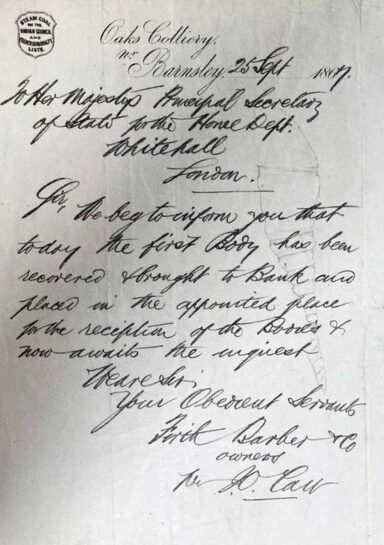 STEAM COAL
ON THE
INDIAN COUNCIL
AND
LISTS.
Oaks Colliery,
nr Barnsley, 25 Sept 1867.
To Her Majestys Principal Secretary
of State for the Home Dept.
Whitehall
London.
Sir, We beg to inform you that
today the first Body has been
recovered & brought to Bank and
placed in the appointed place
for the reception of the Bodies &
now awaits the inquest
We are Sir
Your Obedient Servants
Firth Barber & Co
owners
per